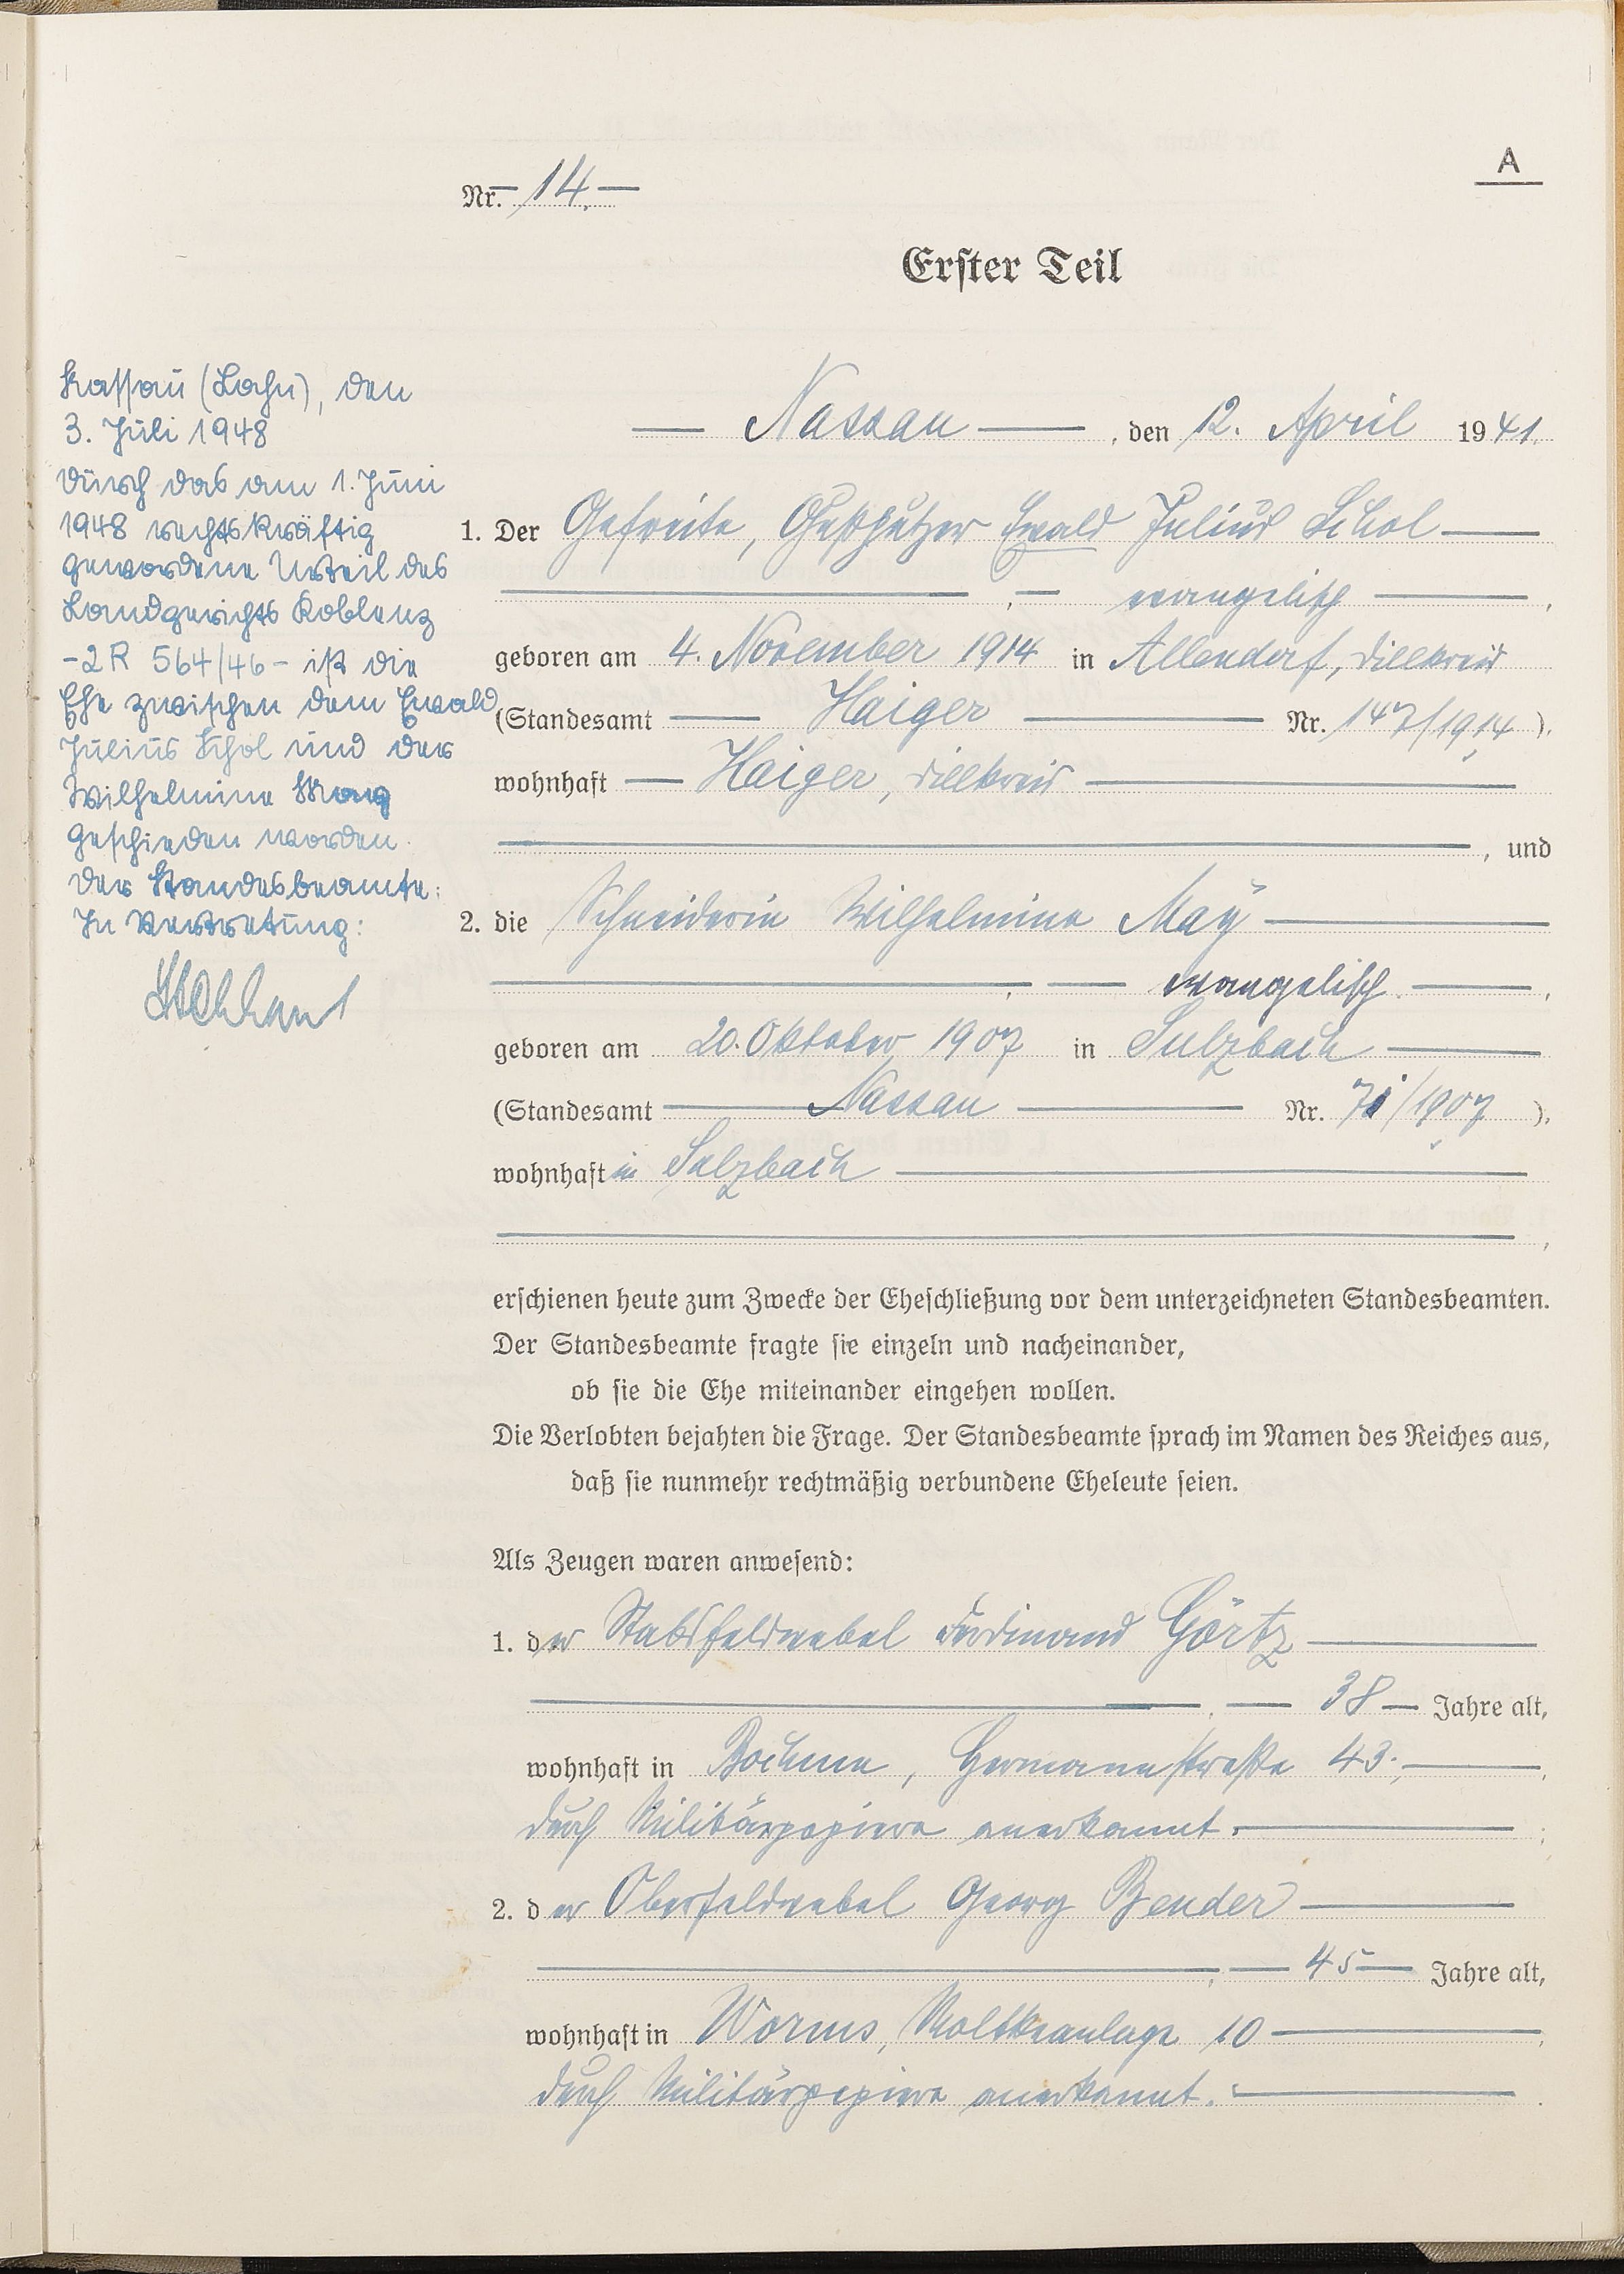 A
Nr. 14.
Erster Teil
Nassau (Lahn), den
3. Juli 1948
Durch das am 1. Juni
1948 rechtskräftig
gewordene Urteil des
Landgerichts Koblenz
-2R 564/46- ist die
Ehe zwischen dem Ewald
Julius Schol und der
Wilhelmine May
geschieden worden.
Der Standesbeamte:
In Vertretung:
Nassau, den 12. April 1941.
1. Der Gefreite, Gußputzer Ewald Julius Schol
, evangelisch,
geboren am 4. November 1914 in Allendorf, Dillkreis
(Standesamt Haiger Nr. 147/1914),
wohnhaft Haiger, Dillkreis
, und
2. die Schneiderin Wilhelmine May
, evangelisch,
geboren am 20. Oktober 1907 in Sulzbach
(Standesamt Nassau Nr. 71/1907),
wohnhaft in Sulzbach
,
erschienen heute zum Zwecke der Eheschließung vor dem unterzeichneten Standesbeamten.
Der Standesbeamte fragte sie einzeln und nacheinander,
ob sie die Ehe miteinander eingehen wollen.
Die Verlobten bejahten die Frage. Der Standesbeamte sprach im Namen des Reiches aus,
daß sie nunmehr rechtmäßig verbundene Eheleute seien.
Als Zeugen waren anwesend:
1. der Stabsfeldwebel Ferdinand Görtz
, 38 Jahre alt,
wohnhaft in Bochum, Hermannstraße 43.,
durch Militärpapiere anerkannt.;
2. der Oberfeldwebel Georg Bender
, 45 Jahre alt,
wohnhaft in Worms, Moltkeanlage 10,
durch Militärpapiere anerkannt.